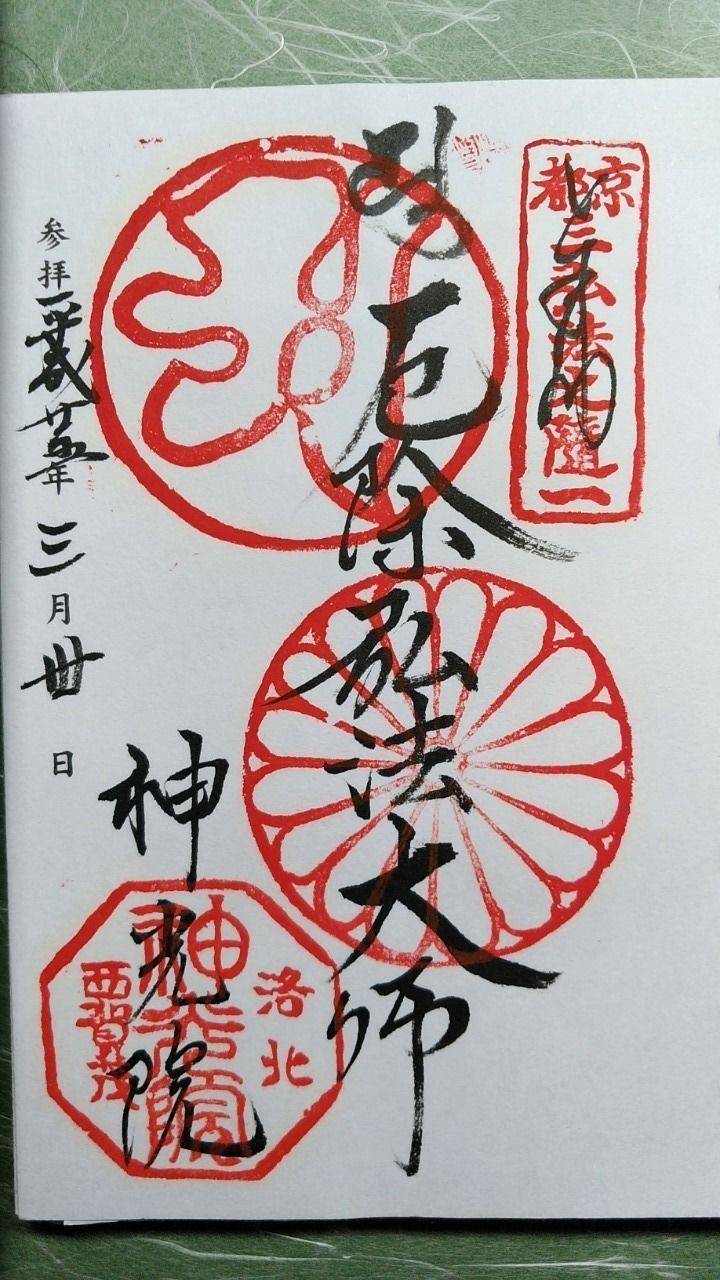 奉拝
京都
三弘法之隨一
厄除弘法大師
神光院
洛北
神光院
西賀茂
参拝平成廿五年三月卅日